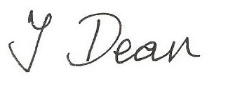 J Dean